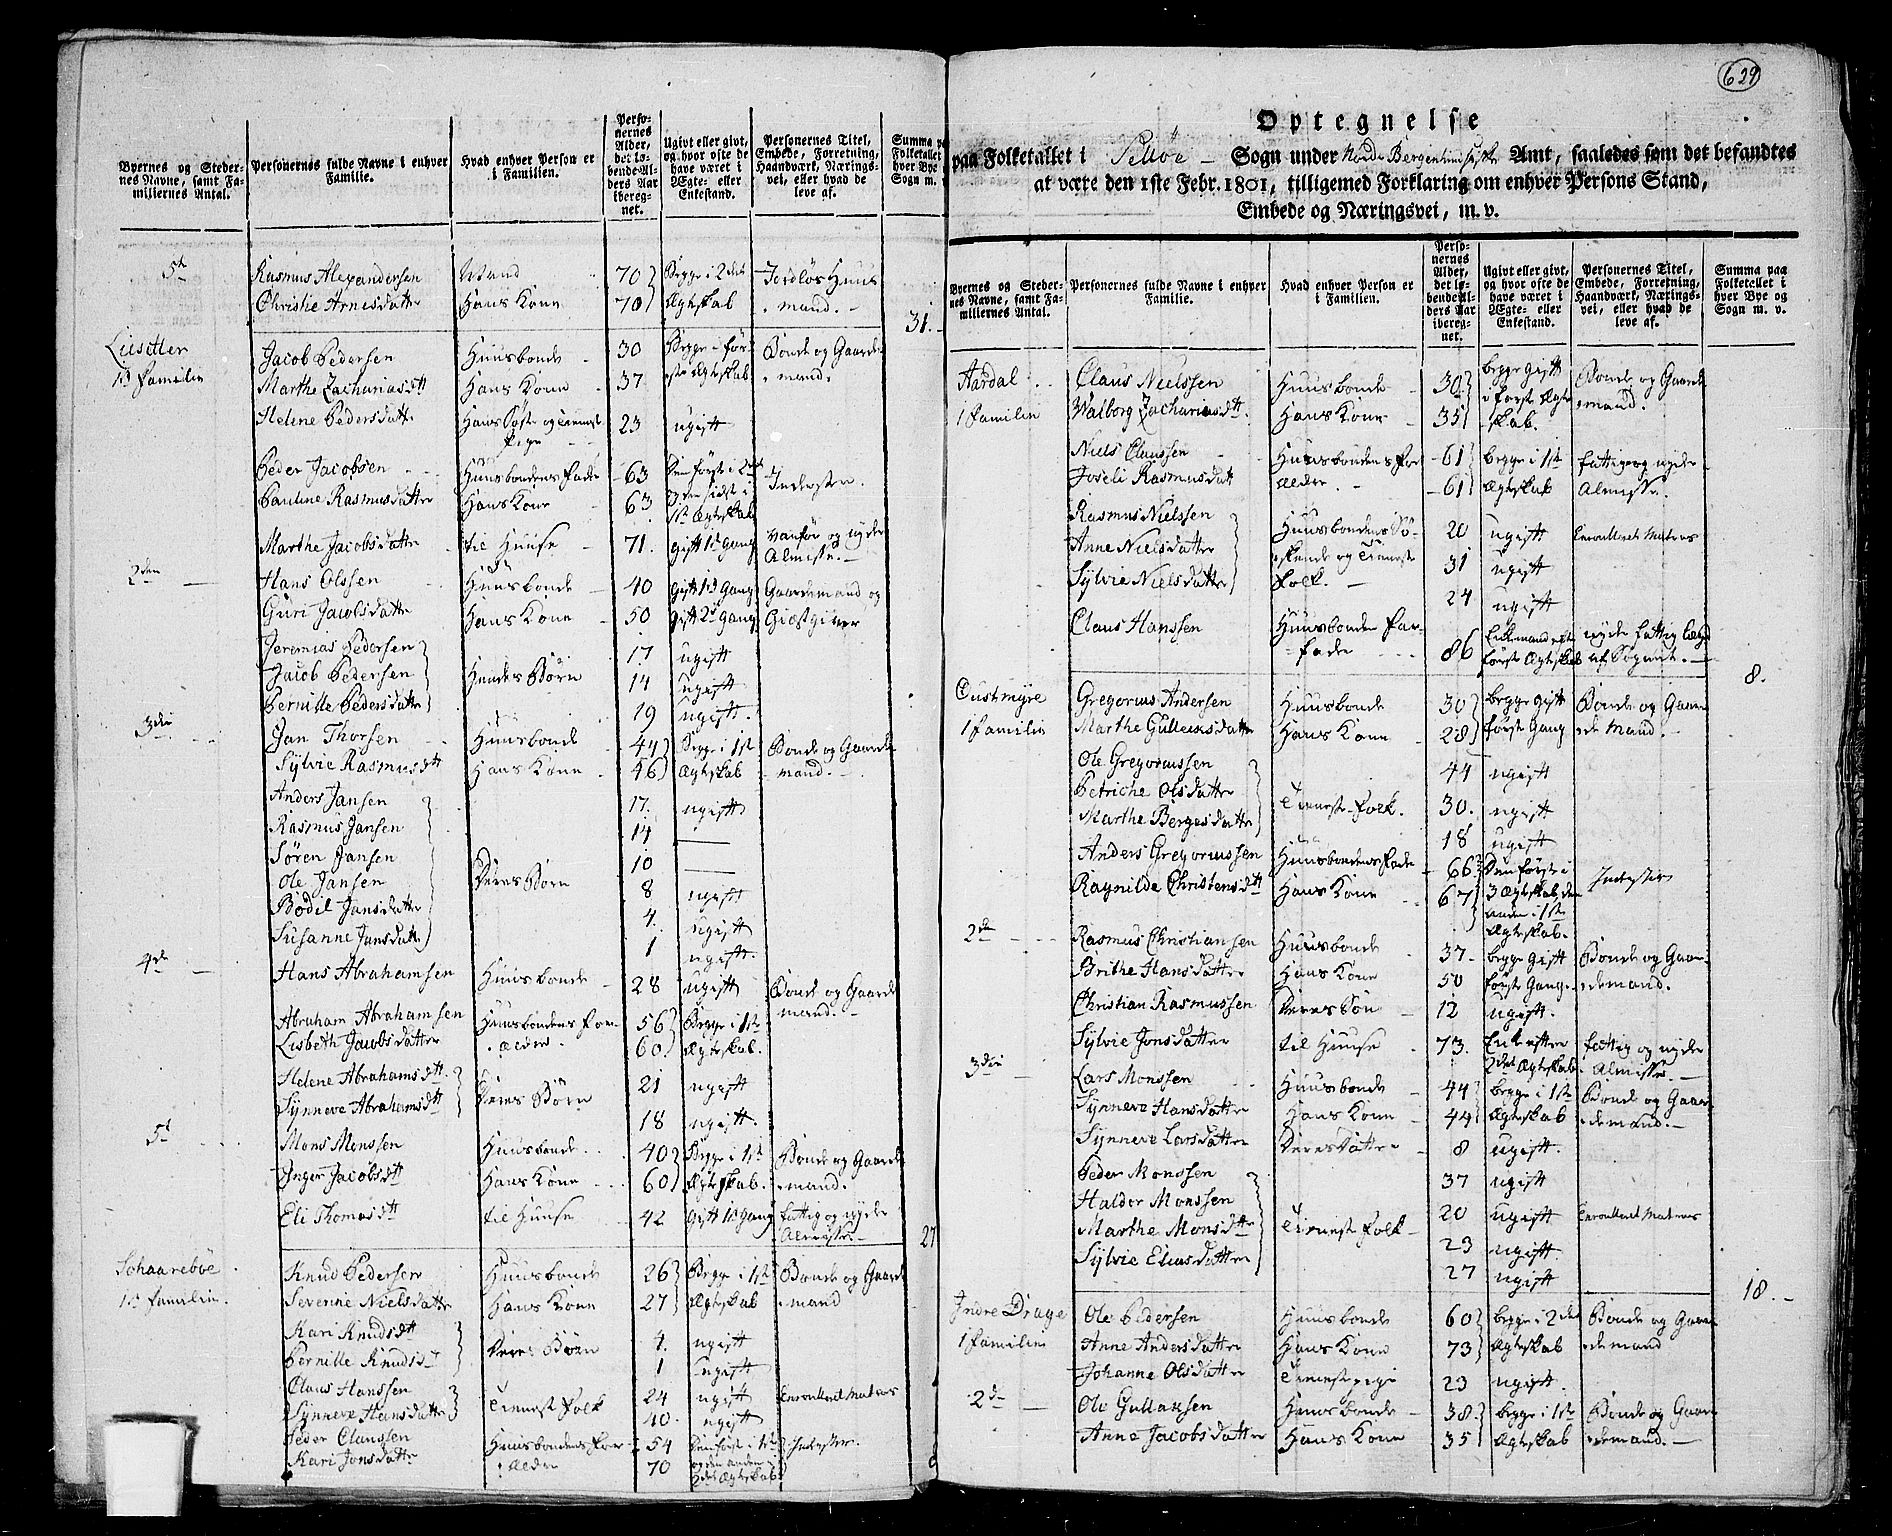 Byernes og Steder-
nes Navne, samt Fa-
miliernes Antal.
Personernes fulde Navne i enhver
Familie.
Hvad enhver Person er
i Familien.
Perso-
nernes
Alder,
det lø-
bende Al-
ders Aar
ibereg-
net.
Ugivt eller givt,
og hvor ofte de
have været i
Ægte- eller
Enkestand.
Personernes Titel,
Embede, Forretning,
Haandværk, Nærings-
vei, eller hvad de
leve af.
Summa paa
Folketallet
hver Bye og
Sogn m. v.
5t Rasmus Alexandersen Mand 70 Begge i 2det Jordløs Huus
Christie Arnesdatter Hans Kone 70 Ægteskab mand. 31.
Jacob Pedersen Huusbonde 30 Begge i før Bonde og Gaarde
1st Familien Marthe Zachariasdtt Hans Kone 37 ste Ægteskab mand.
Helene Pedersdatter Hans Søster og Tieneste 23 ugift
Pige
Peder Jacobsen Huusbondens Fader 63 Den første i 2det Inderster.
Pauline Rasmusdatter Hans Kone 63 den sidste i
1ste Ægteskab
Marthe Jacobsdatter til Huuse 71. gift 1st Gang vanfør og nyder
Almisse.
2den Hans Olssen Huusbonde 40 Gift 1st Gang Gaardemand og
Guri Jacobsdatter Hans Kone 50 Gift 2d Gang Giæstgiver
Jeremias Pedersen 17 ugift
Jacob Pedersen Hendes Børn 14 ugift
Pernille Pedersdatter 19 ugift.
3die Jan Thorsen Huusbonde 44 Begge i 1ste Bonde og Gaarde
Sylvie Rasmusdtt Hans Kone 46 Ægteskab mand.
Anders Jansen 17. ugift
Rasmus Jansen 14
Søren Jansen 10
Ole Jansen Deres Børn 8 ugift
Bodil Jansdatter 4. ugift
Susanne Jansdatt 1 ugift.
4de Hans Abrahamsen Huusbonde 28 ugift Bonde og Gaarde
mand.
Abraham Abrahamsen Huusbondens For- 56 Begge i 1ste
Lisbeth Jacobsdatter ældre. 60 Ægteskab.
Helene Abrahamsdtt 21 ugift
Synneve Abrahamsdtt Deres Børn 18 ugift.
5t Mons Monssen Huusbonde 40 Begge i 1ste Bonde og Gaarde
Inger Jacobsdtt Hans Kone 60 Ægteskab. mand.
Eli Thomasdtt til Huuse 42 Gift 1st Gang fattig og nyder
Almisse. 27
Knud Pedersen Huusbonde 26 Begge i 1ste Bonde og Gaarde
1st Familien. Severine Nielsdatter Hans Kone 27 Ægteskab mand
Kari Knudsdtt 4. ugift
Pernille Knudsdtt Deres Børn 1 ugift
Claus Hanssen 24 ugift Enroulleret Matros
Synneve Hansdatter Tieneste Folk 40. ugift
Peder Claussen Huusbondens For- 54 Den første i 1ste Inderster.
Kari Jonsdatter ældre 70 og den anden i
2det Ægteskab
629
Optegnelse
paa Folketallet i Selløe Sogn under Nordre Bergenhuusiske Amt, saaledes som det befandtes
at være den 1ste Febr. 1801, tilligemed Forklaring om enhver Persons Stand,
Embede og Næringsvei, m. v.
Byernes og Steder-
nes Navne, samt Fa-
miliernes Antal.
Personernes fulde Navne i enhver
Familie.
Hvad enhver Person er
i Familien.
Perso-
nernes
Alder,
det lø-
bende Al-
ders Aar
iberег-
net.
Ugivt eller givt,
og hvor ofte de
have været i
Ægte- eller
Enkestand.
Personernes Titel,
Embede, Forretning,
Haandværk, Nærings-
vei, eller hvad de
leve af.
Summa paa
Folketallet i
hver Bye og
Sogn m. v.
Aardal Claus Nielssen Huusbonde 30 begge gift Bonde og Gaar
1 Familien Walborg Zachariasdtt Hans Kone 35 i første Ægte demand.
skab.
Niels Claussen Huusbondens For 61 begge i 1ste fattige og nyder
Joseli Rasmusdatt ældre. 61 Ægteskab Almisse.
Rasmus Nielssen Huusbondens Sø- 20 ugift Enroulleret Matros
Anne Nielsdatter skende og Tieneste 31 ugift
Sylvie Nielsdatter Folk. 24 ugift
Claus Hanssen Huusbondens Far- 86 Enkemand efter nyder fattig Lægd
fader første Ægteskab af Sognet. 8.
Gregorius Andersen Huusbonde 30 begge gift Bonde og Gaar
1 Familien Marthe Gullensdatter Hans Kone 28 første Gang demand.
Ole Gregoriussen 44 ugift
Petriche Olsdatter Tieneste Folk. 30. ugift
Marthe Bergesdatter 18 ugift
Anders Gregoriussen Huusbondens Fader 66 Den første i Inderster
Ragnilde Christensdtt Hans Kone 67 3 Ægteskab, den
anden i 1ste
Ægteskab.
2de Rasmus Christiansen Huusbonde 37. begge gift Bonde og Gaar
Brithe Hansdatter Hans Kone 50 første Gang. demand.
Christian Rasmussen Deres Søn 12 ugift.
Sylvie Jonsdatter til Huuse 73. Enke efter fattig og nyder
2det Ægteskab Almisse.
3die Lars Monssen Huusbonde 44 begge i 1ste Bonde og Gaar
Synneve Hansdatter Hans Kone 44 Ægteskab demand.
Synneve Larsdatter Deres Datter 8 ugift.
Peder Monssen 37 ugift
Haldor Monssen 20 ugift Enroulleret Matros
Marthe Monsdtr Tieneste Folk 23 ugift
Sylvie Eliasdatter 27 ugift 18.
Indre Drage Ole Pedersen Huusbonde 60 begge i 2det Bonde og Gaar
1 Familien Anne Andersdatter Hans Kone 73 Ægteskab demand
Johanne Olsdatter Tienestepige 23 ugift.
2d Ole Gullaksen Huusbonde 38 begge i 1ste Bonde og Gaar
Anne Jacobsdatter Hans Kone 35 Ægteskab demand.